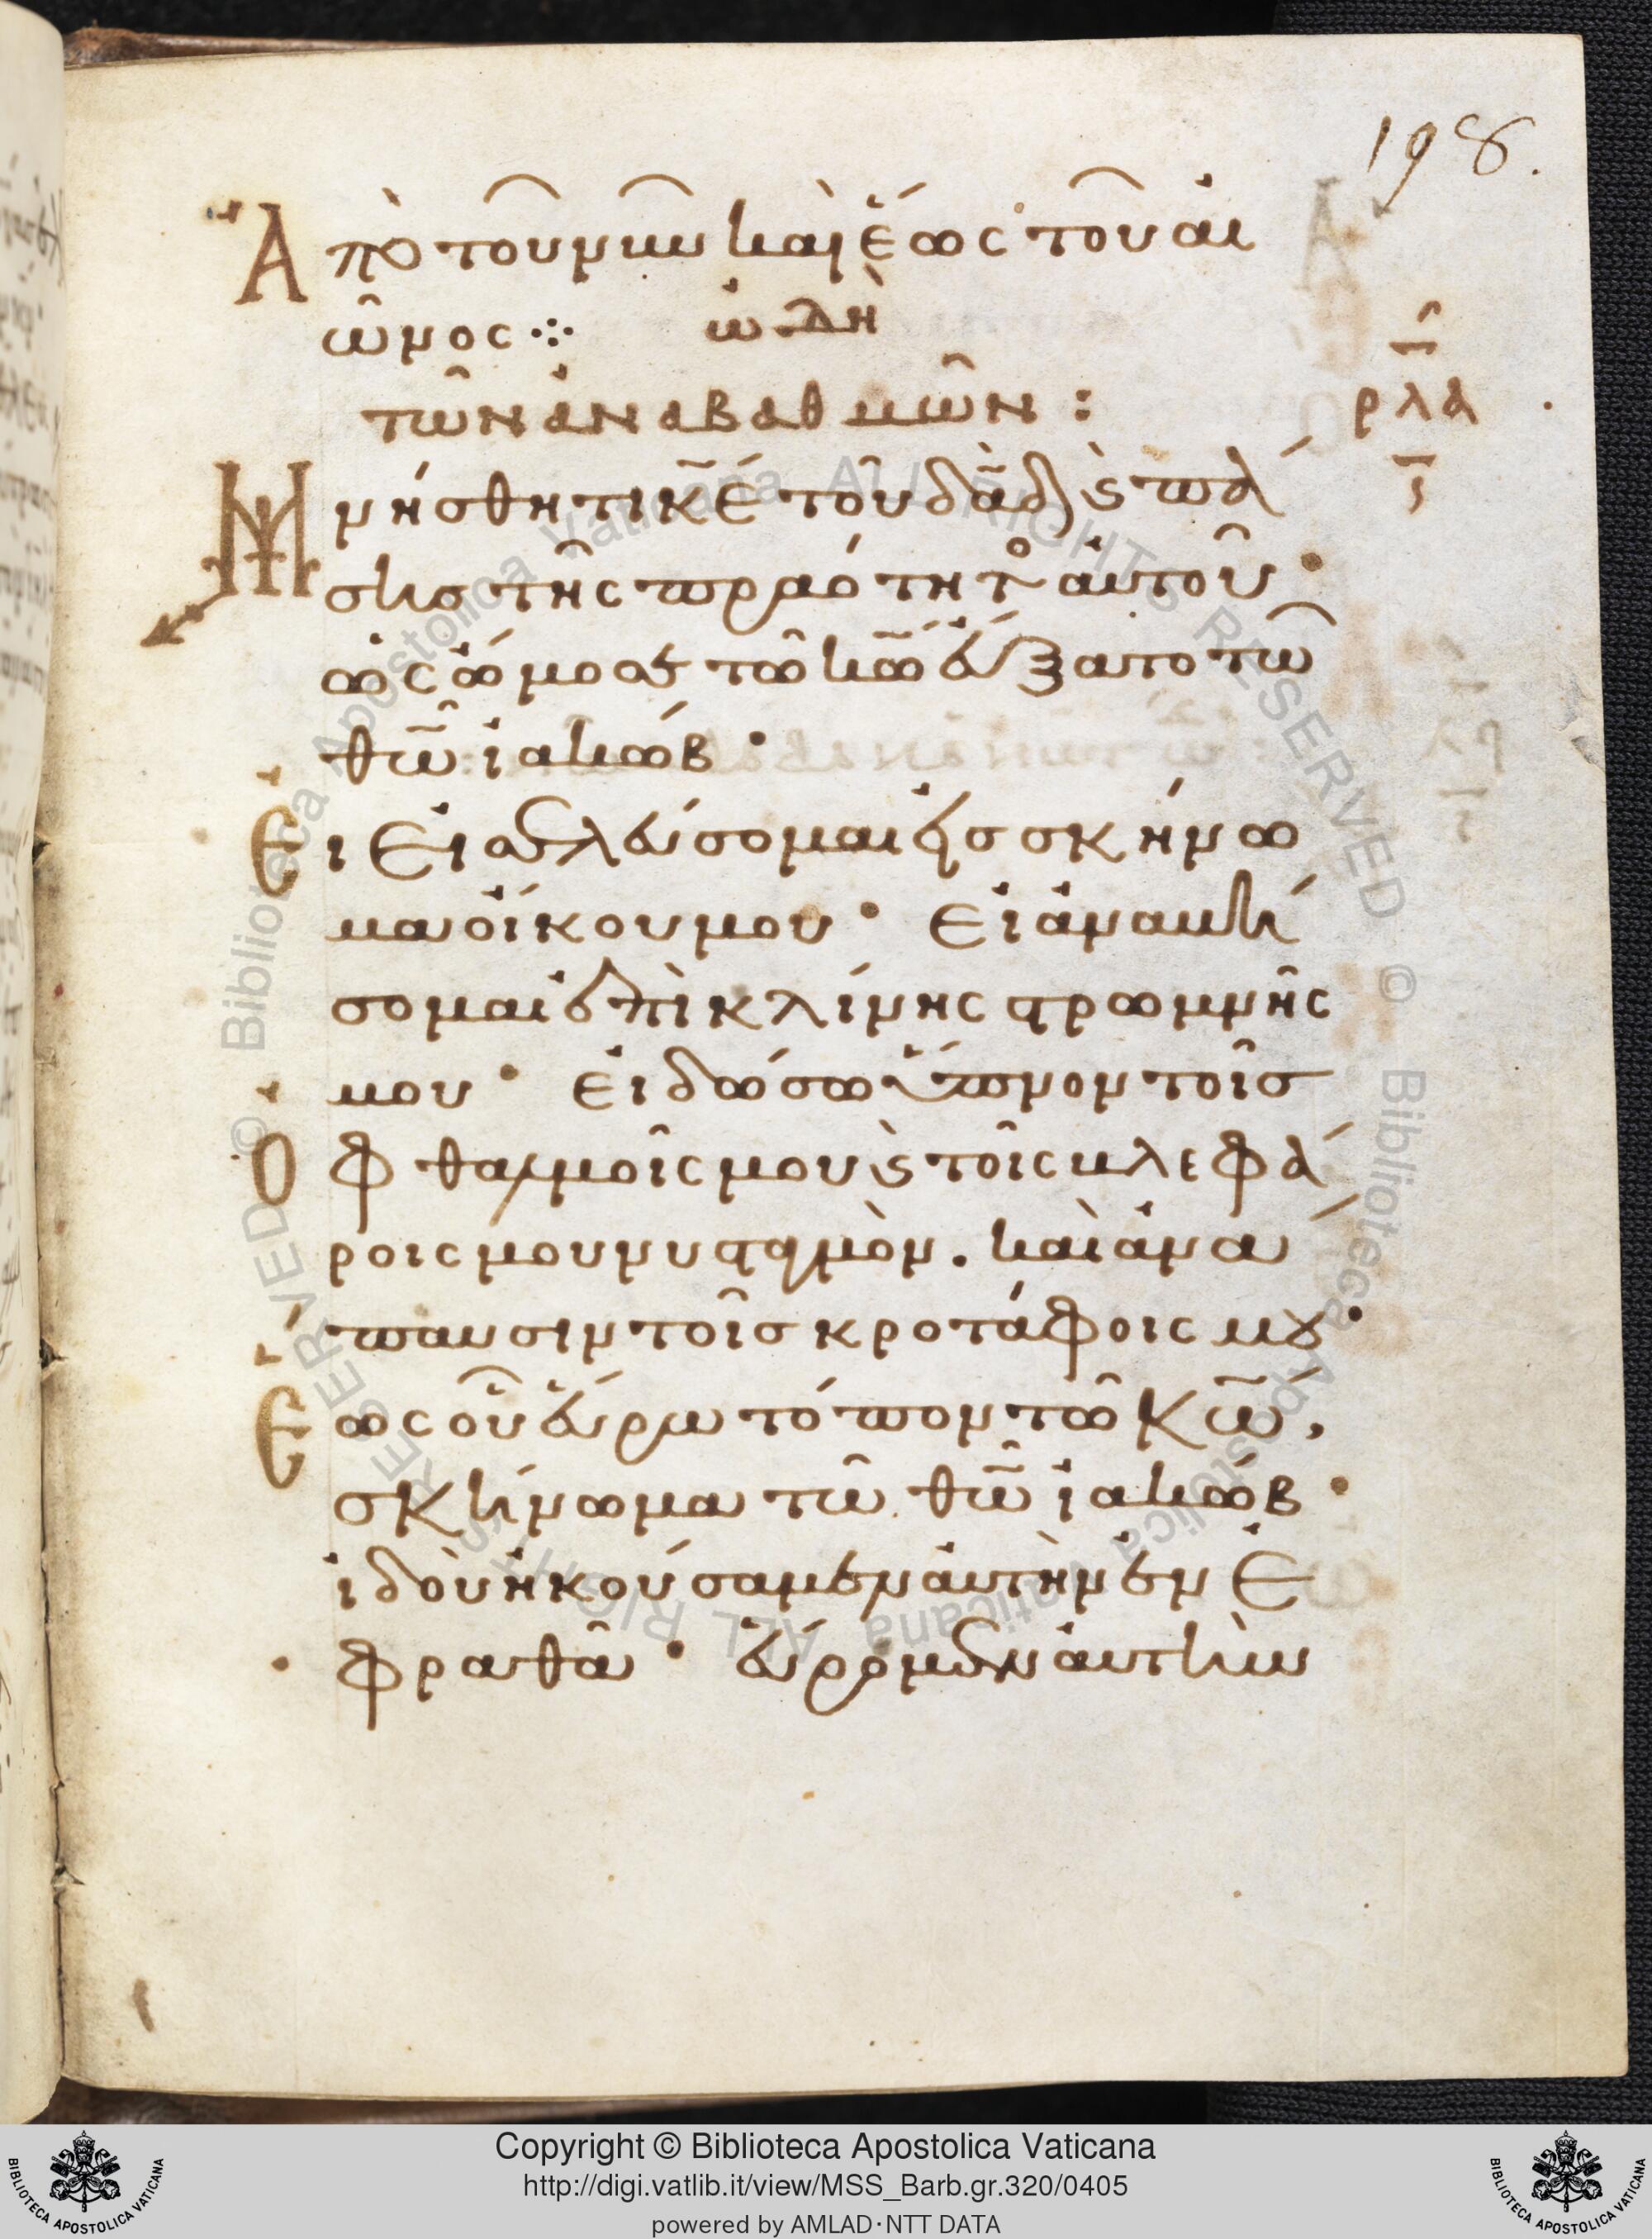 198.
Ἀπὸ τοῦ νῦν καὶ ἕως τοῦ αἰ
ῶνος ⁘ ὠδὴ
τῶν ἀναβαθμῶν :
ρλα
Μνήσθητι κ̅ε̅ τοῦ δα̅δ̅ ϗ πά
σης τῆς πραότητο αὐτοῦ·
ὡς ὤμοσε τῶ κ̅ω̅ εὔξατο τῶ
θ̅ω̅ ἰακώβ·
Εἰ εἰσελεύσομαι εἰς σκήνω
μα οἴκου μου· εἰ ἀναβή
σομαι ἐπὶ κλίνης στρωμνῆς
μου· εἰ δώσω ὕπνον τοῖσ
Ὀφθαλμοῖς μου ϗ τοῖς βλεφά
ροις μου νυσταγμὸν. καὶ ἀνά
παυσιν τοῖσ κροτάφοις μου·
Ἕως οὗ εὕρω τόπον τῶ κ̅ω̅,
σκήνωμα τῶ θ̅ω̅ ἰακώβ·
ἰδοὺ ἠκούσαμεν αὐτὴν ἐν ἐ
φραθᾶ· εὕρομεν αὐτὴν
Copyright © Biblioteca Apostolica Vaticana
http://digi.vatlib.it/view/MSS_Barb.gr.320/0405
powered by AMLAD·NTT DATA
BIBLIOTECA APOSTOLICA VATICANA
BIBLIOTECA APOSTOLICA VATICANA